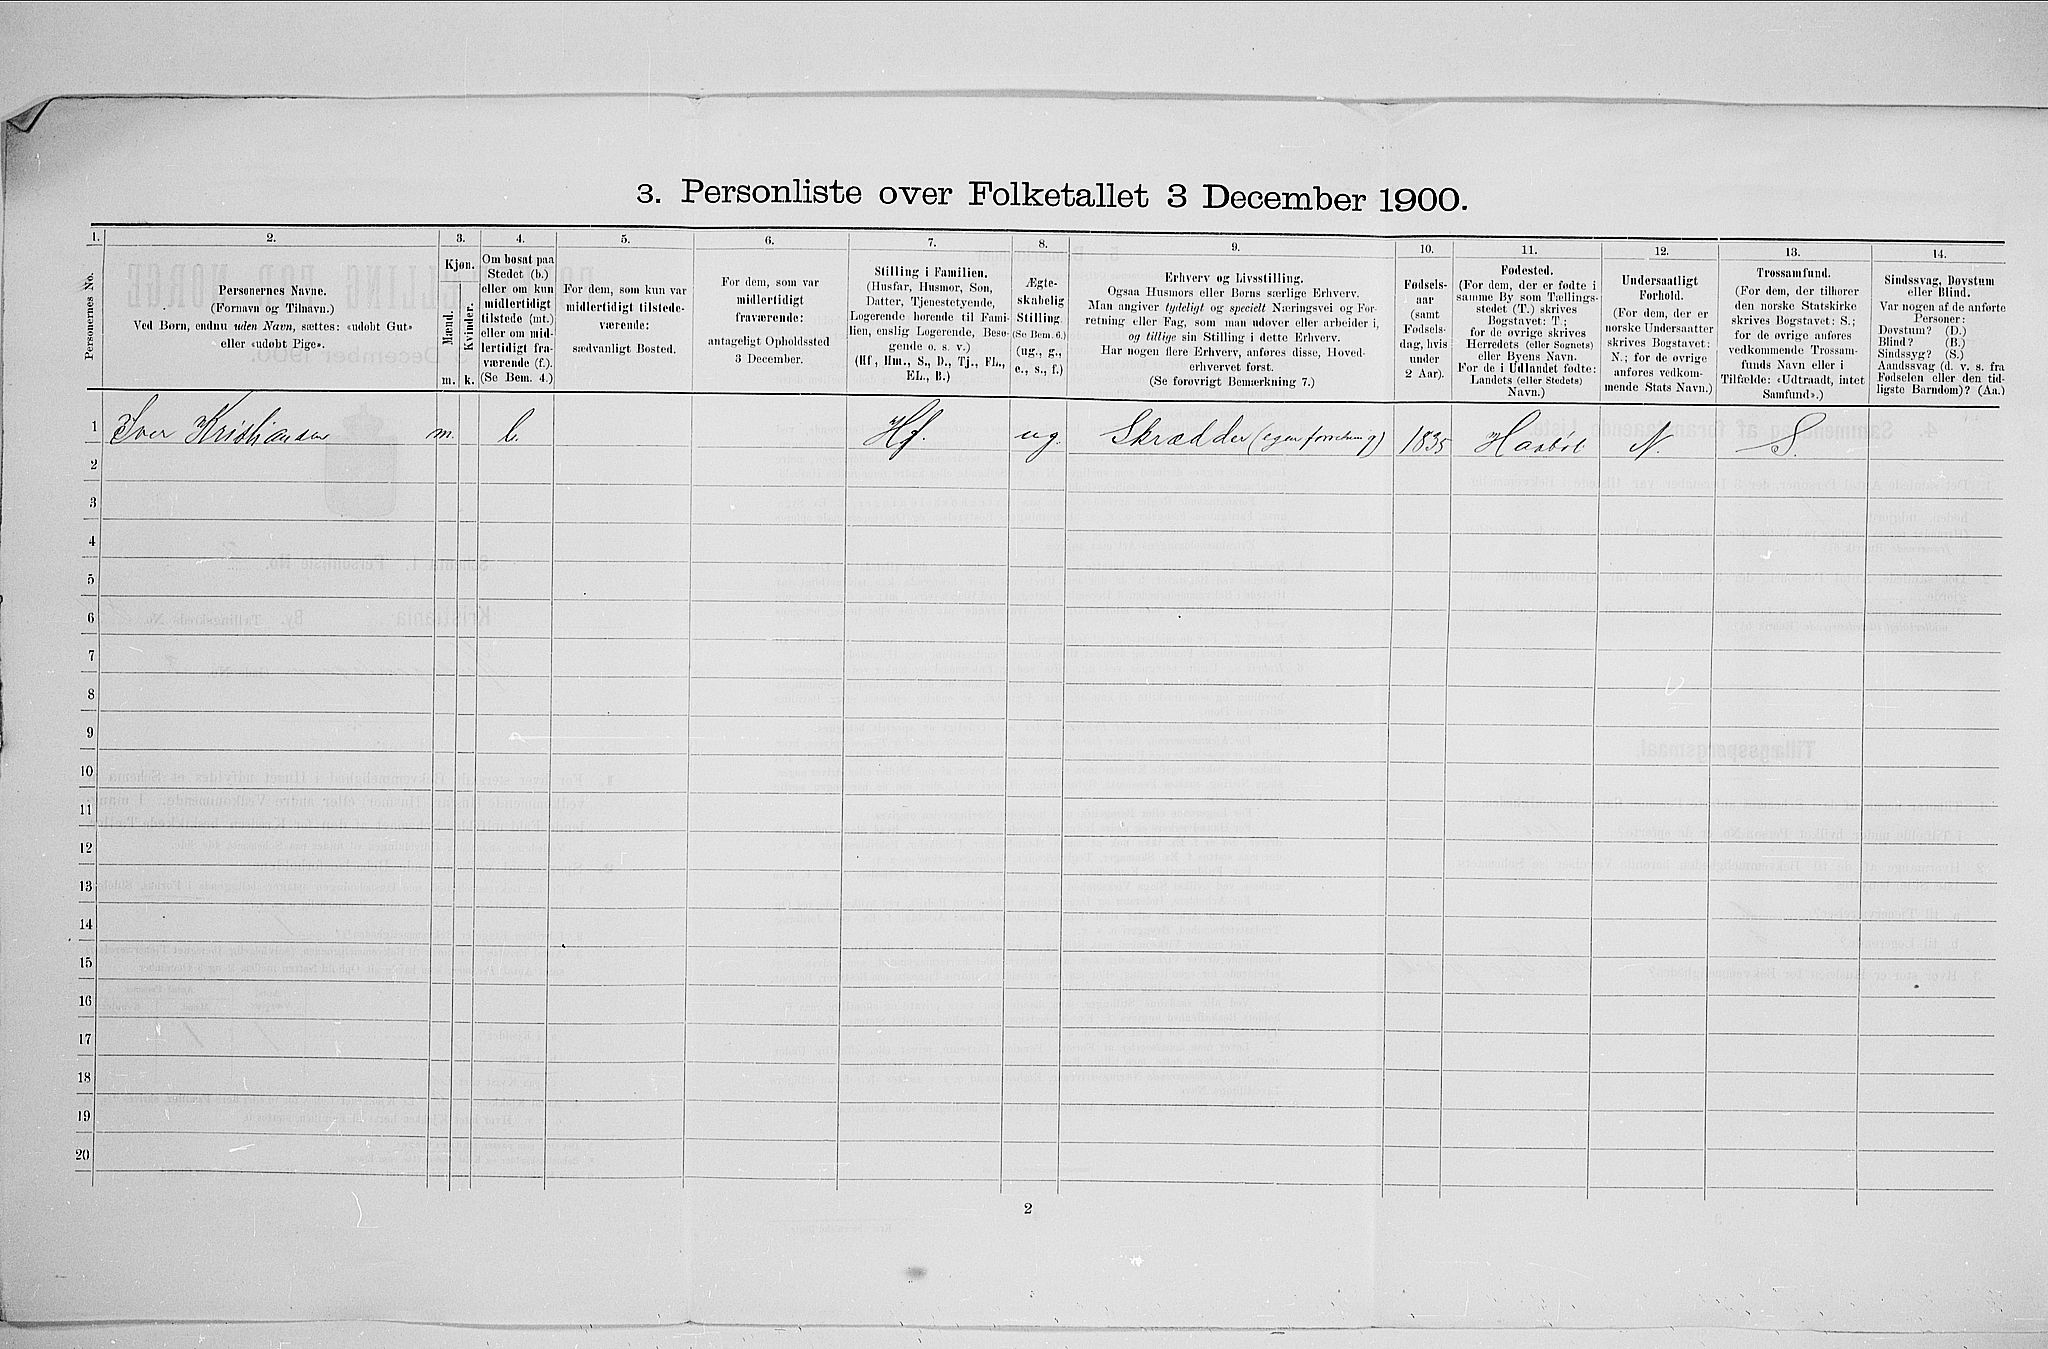 3. Personliste over Folketallet 3 December 1900.
1. 2. 3. 4. 5. 6. 7. 8. 9. 10. 11. 12. 13. 14.
Personernes No.
Personernes Navne.
(Fornavn og Tilnavn.)
Ved Børn, endnu uden Navn, sættes: «udøbt Gut»
eller «udøbt Pige».
Kjøn.
Mænd.
Kvinder.
m. k.
Om bosat paa
Stedet (b.)
eller om kun
midlertidigt
tilstede (mt.)
eller om mid-
lertidigt fra-
værende (f.).
(Se Bem. 4.)
For dem, som kun var
midlertidigt tilstede-
værende:
sædvanligt Bosted.
For dem, som var
midlertidigt
fraværende:
antageligt Opholdssted
3 December.
Stilling i Familien.
(Husfar, Husmor, Søn,
Datter, Tjenestetyende,
Logerende hørende til Fami-
lien, enslig Logerende, Besø-
gende o. s. v.)
(Hf., Hm., S., D., Tj., FL.,
EL., B.)
Ægte-
skabelig
Stilling.
(Se Bem. 6.)
(ug., g.,
e., s., f.)
Erhverv og Livsstilling.
Ogsaa Husmors eller Børns særlige Erhverv.
Man angiver tydeligt og specielt Næringsvei og For-
retning eller Fag, som man udøver eller arbeider i,
og tillige sin Stilling i dette Erhverv.
Har nogen flere Erhverv, anføres disse, Hoved-
erhvervet først.
(Se forøvrigt Bemærkning 7.)
Fødsels-
aar
(samt
Fødsels-
dag, hvis
under
2 Aar).
Fødested.
(For dem, der er fødte i
samme By som Tællings-
stedet (T.) skrives
Bogstavet: T.;
for de øvrige skrives
Herredets (eller Sognets)
eller Byens Navn.
For de i Udlandet fødte:
Landets (eller Stedets)
Navn.)
Undersaatligt
Forhold.
(For dem, der er
norske Undersaatter
skrives Bogstavet:
N.; for de øvrige
anføres vedkom-
mende Stats Navn.)
Trossamfund.
(For dem, der tilhører
den norske Statskirke
skrives Bogstavet: S.;
for de øvrige anføres
vedkommende Trossam-
funds Navn eller i
Tilfælde: «Udtraadt, intet
Samfund».)
Sindssvag, Døvstum
eller Blind.
Var nogen af de anførte
Personer:
Døvstum? (D.)
Blind? (B.)
Sindssyg? (S.)
Aandssvag (d. v. s. fra
Fødselen eller den tid-
ligste Barndom)? (Aa.)
1 Iver Kristiansen m. b. Hf. ug. Skrædder (egen forretning) 1835 N. S.
2
3
4
5
6
7
8
9
10
11
12
13
14
15
16
17
18
19
20
2